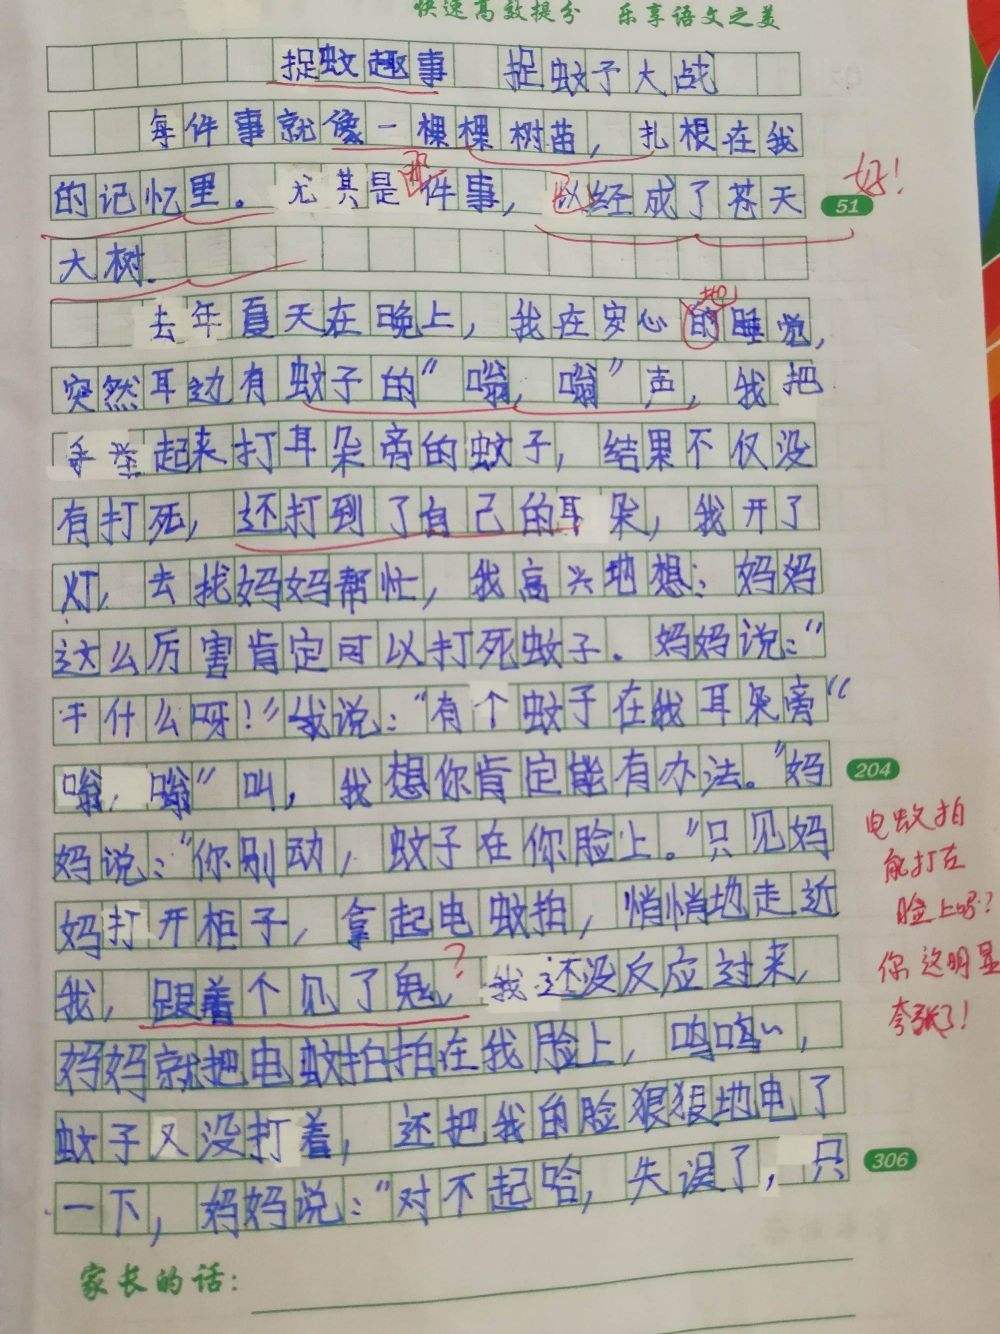 快速高效提分 乐享语文之美
捉蚊趣事 捉蚊子大战
每件事就像一棵棵树苗，扎根在我
的记忆里。尤其是那件事，以经成了苍天
已
好！
51
大树.
去年夏天在晚上，我在安心的睡觉，
地
突然耳边有蚊子的“嗡，嗡”声，我把
手举起来打耳朵旁的蚊子，结果不仅没
有打死，还打到了自己的耳朵，我开了
灯，去找妈妈帮忙，我高兴地想：妈妈
这么厉害肯定可以打死蚊子.妈妈说：“
干什么呀！”我说：“有个蚊子在我耳朵旁“
嗡，嗡”叫，我想你肯定能有办法。”妈
204
妈说：“你别动，蚊子在你脸上。”只见妈
妈打开柜子，拿起电蚊拍，悄悄地走近
我，跟着个见了鬼，我还没反应过来，
？
妈妈就把电蚊拍拍在我脸上，呜呜~，
蚊子又没打着，还把我的脸狠狠地电了
一下，妈妈说：“对不起哈，失误了，只
306
电蚊拍
能打在
脸上吗？
你这明显
夸张了！
家长的话：